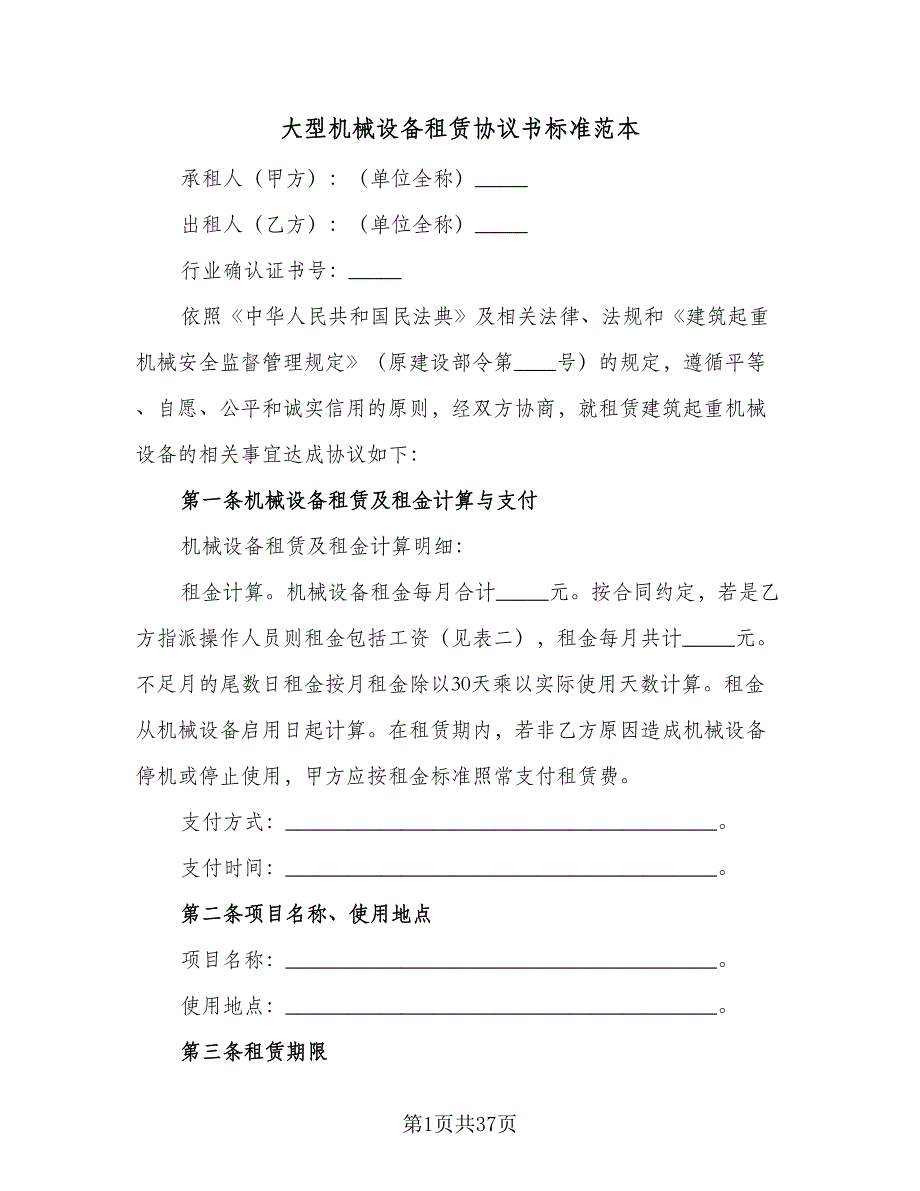 大型机械设备租赁协议书标准范本
承租人（甲方）：（单位全称）_____
出租人（乙方）：（单位全称）_____
行业确认证书号：_____
依照《中华人民共和国民法典》及相关法律、法规和《建筑起重
机械安全监督管理规定》（原建设部令第____号）的规定，遵循平等
、自愿、公平和诚实信用的原则，经双方协商，就租赁建筑起重机械
设备的相关事宜达成协议如下：
第一条机械设备租赁及租金计算与支付
机械设备租赁及租金计算明细：
租金计算。机械设备租金每月合计_____元。按合同约定，若是乙
方指派操作人员则租金包括工资（见表二），租金每月共计_____元。
不足月的尾数日租金按月租金除以30天乘以实际使用天数计算。租金
从机械设备启用日起计算。在租赁期内，若非乙方原因造成机械设备
停机或停止使用，甲方应按租金标准照常支付租赁费。
支付方式：_________________________________________。
支付时间：_________________________________________。
第二条项目名称、使用地点
项目名称：_________________________________________。
使用地点：_________________________________________。
第三条租赁期限
第1页共37页